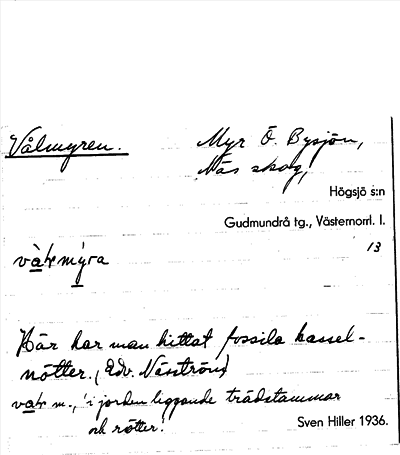 Vålmyren.
Myr Ö. Bysjön,
Näs skog,
Högsjö s:n
Gudmundrå tg., Västernorrl. l.
13
mýra
Här har man hittat fossila hassel-
nötter. (Edv. Näsström)
m., 'i jorden liggande trädstammar
och rötter'.
Sven Hiller 1936.